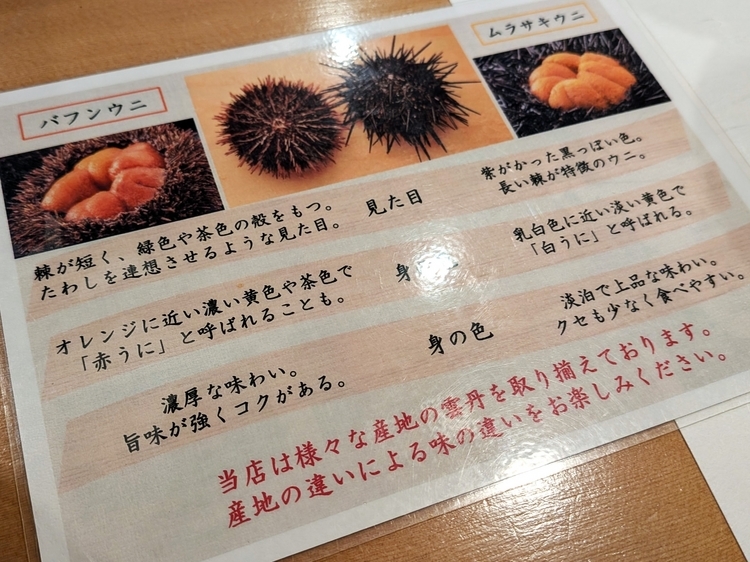 バフンウニ
ムラサキウニ
棘が短く、緑色や茶色の殻をもつ。
たわしを連想させるような見た目。
見た目
紫がかった黒っぽい色。
長い棘が特徴のウニ。
オレンジに近い濃い黄色や茶色で
「赤うに」と呼ばれることも。
身の
乳白色に近い淡い黄色で
「白うに」と呼ばれる。
濃厚な味わい。
旨味が強くコクがある。
身の色
淡泊で上品な味わい。
クセも少なく食べやすい。
当店は様々な産地の雲丹を取り揃えております。
産地の違いによる味の違いをお楽しみください。